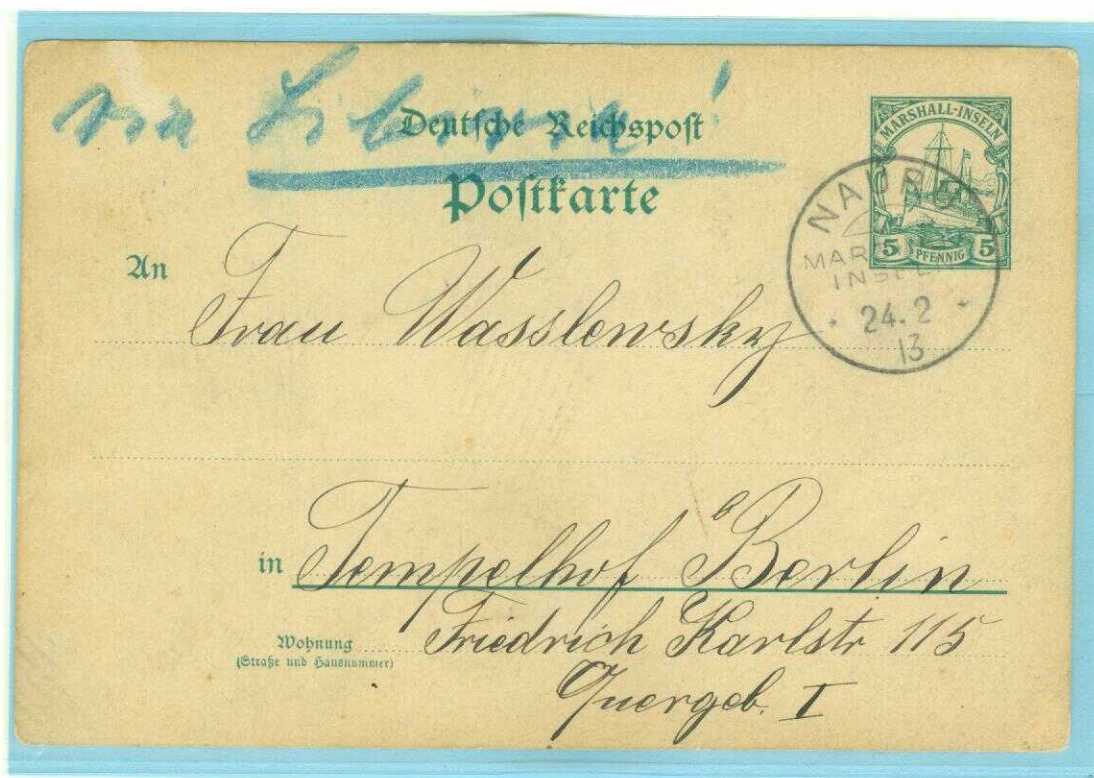 via Sibirien!
Deutsche Reichspost
Postkarte
MARSHALL-INSELN
5 PFENNIG 5
NAURU
MARSHALL-
INSELN
24.2
13
An Frau Wasslewsky
in Tempelhof b Berlin
Wohnung
(Straße und Hausnummer)
Friedrich Karlstr 115
Quergeb. I